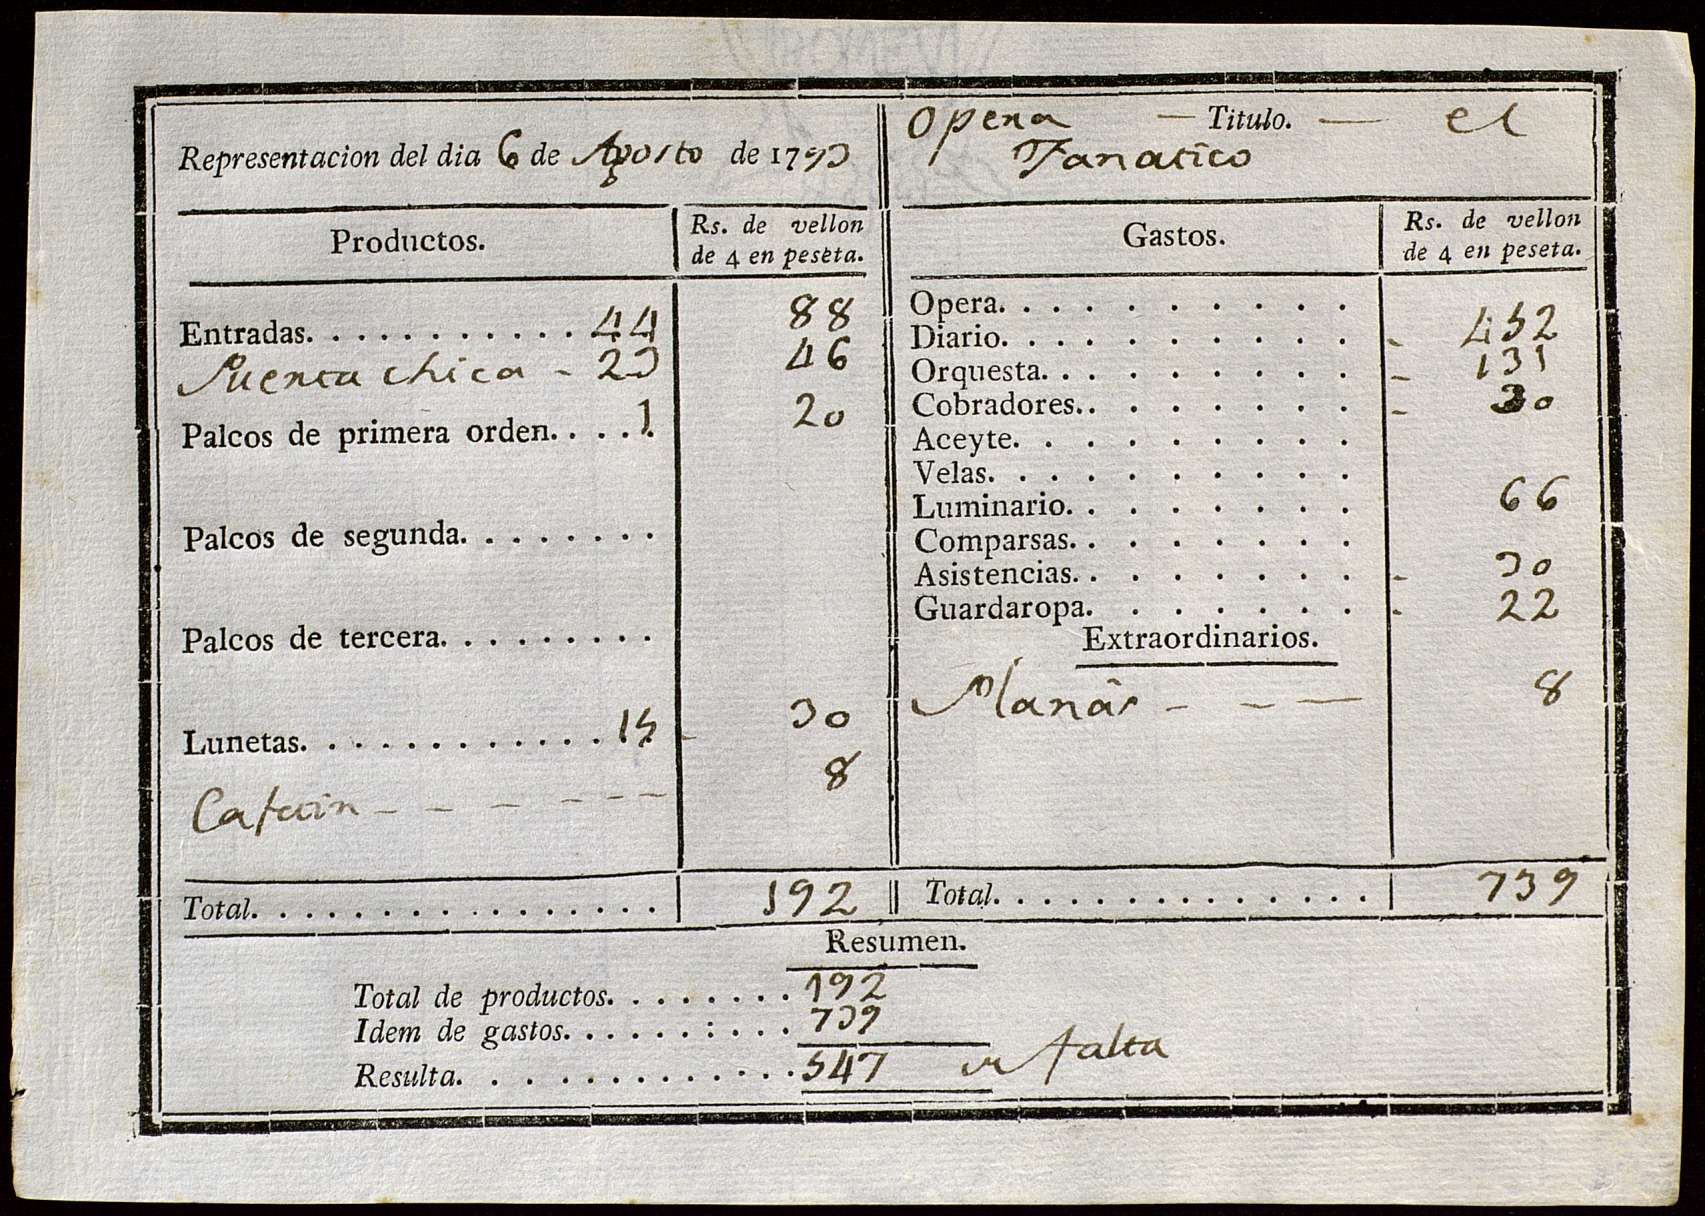 Representacion del dia 6 de Agosto de 1793
Opera — Titulo. — el
Fanatico
Productos.
Rs. de vellon
de 4 en peseta.
Entradas. . . . . . . . . . . 44 88
Puerta chica - 23 46
Palcos de primera orden. . . . . 1 20
Palcos de segunda. . . . . . . .
Palcos de tercera. . . . . . . . .
Lunetas. . . . . . . . . . . . . 15 - 30
8
Total. . . . . . . . . . . . . . . . . 192
Gastos.
Rs. de vellon
de 4 en peseta.
Opera. . . . . . . . . . .
Diario. . . . . . . . . . . - 452
Orquesta. . . . . . . . . . - 131
Cobradores. . . . . . . . . - 30
Aceyte. . . . . . . . . .
Velas. . . . . . . . . . .
Luminario. . . . . . . . . 66
Comparsas. . . . . . . . .
Asistencias. . . . . . . . - 30
Guardaropa. . . . . . . . - 22
Extraordinarios.
8
Total. . . . . . . . . . . . . . . 739
Resumen.
Total de productos. . . . . . . . 192
Idem de gastos. . . . . . : . . . 739
Resulta. . . . . . . . . . . . . 547 falta